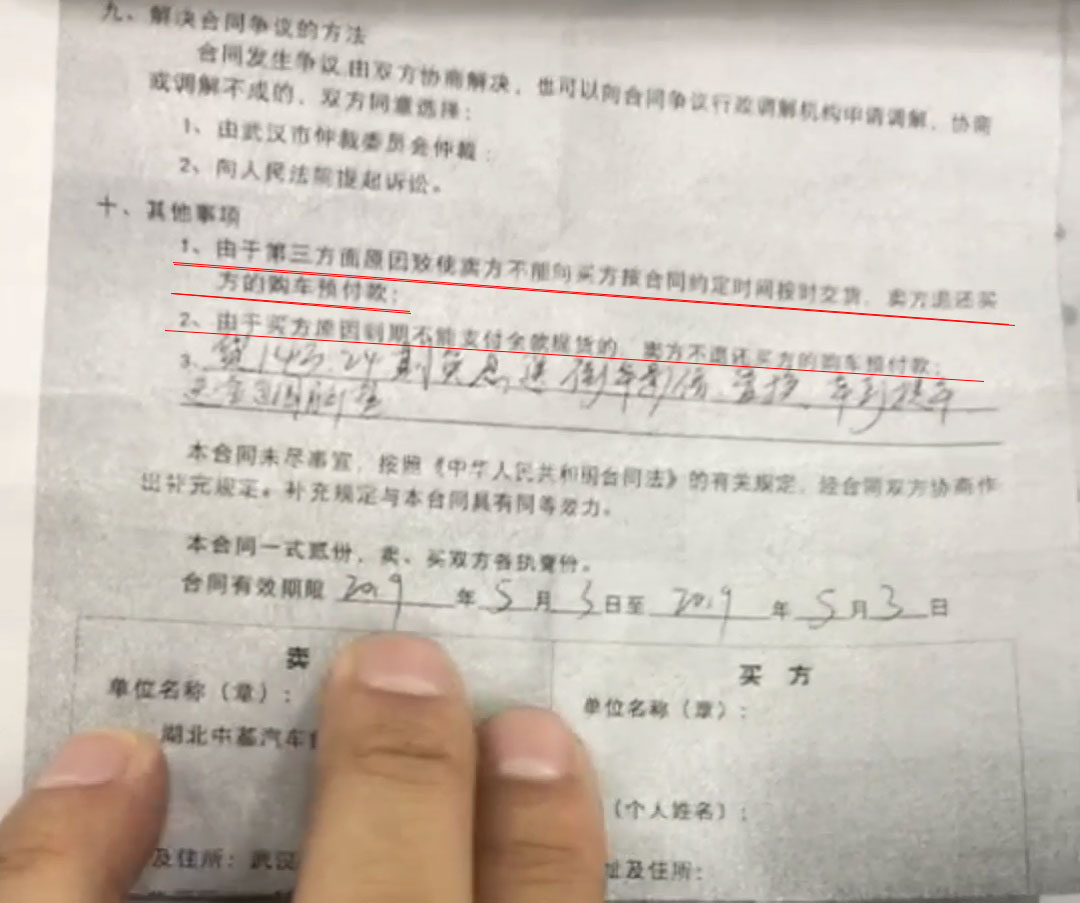 九、解决合同争议的方法
合同发生争议,由双方协商解决，也可以向合同争议行政调解机构申请调解，协商
或调解不成的，双方同意选择：
1、由武汉市仲裁委员会仲裁；
2、向人民法院提起诉讼。
十、其他事项
1、由于第三方面原因致使卖方不能向买方按合同约定时间按时交货，卖方退还买
方的购车预付款；
2、由于买方原因到期不能支付全款提货的，卖方不退还买方的购车预付款；
3、贷143.24期免息,送倒车影像 置换 车到提车
本合同未尽事宜，按照《中华人民共和国合同法》的有关规定，经合同双方协商作
出补充规定。补充规定与本合同具有同等效力。
本合同一式贰份，卖、买双方各执壹份。
合同有效期限 2019 年 5 月 3 日至 2019 年 5 月 3 日
卖
买 方
单位名称（章）：
单位名称（章）：
湖北中基汽车
（个人姓名）：
及住所：武汉
址及住所：